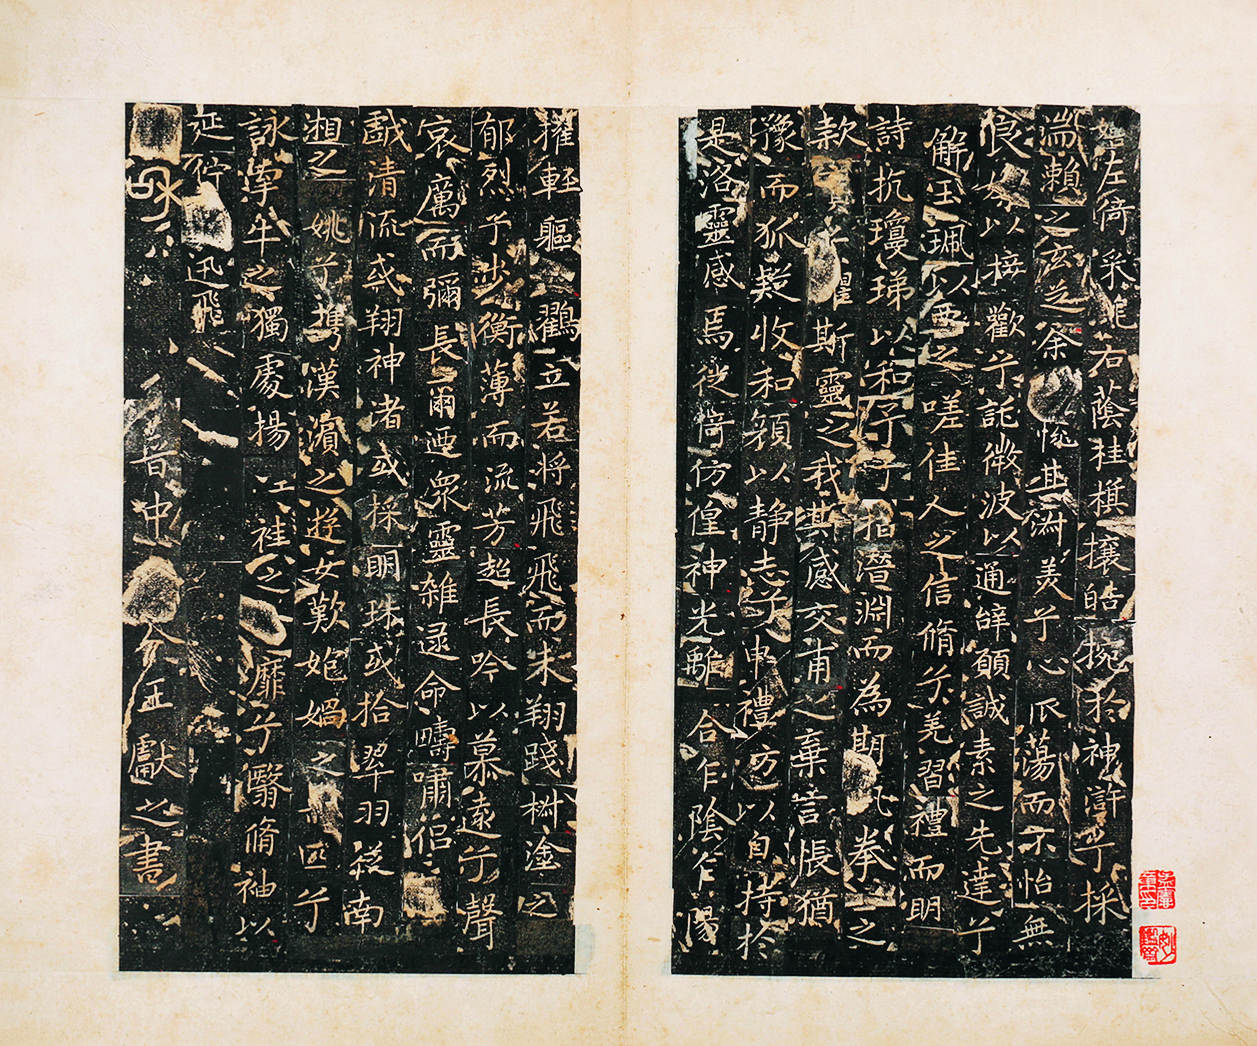 左倚采旄右蔭桂椇攘皓捥於神滸兮採
湍瀨之玄芝余悅其淑美兮心振蕩而不怡無
良媒以接歡兮託微波以通辭願誠素之先達兮
解玉珮以要之嗟佳人之信脩兮羌習禮而明
詩抗瓊珶以和予兮指潛淵而為期執拳拳之
款實兮懼斯靈之我欺感交甫之棄言悵猶
豫而狐疑收和顏以靜志兮申禮方以自持於
是洛靈感焉徙倚仿偟神光離合乍陰乍陽
擢輕軀以鶴立若將飛飛而未翔踐椒塗之
郁烈兮步衡薄而流芳超長吟以慕遠兮聲
哀厲而彌長爾迺眾靈雜遝命疇嘯侶
戲清流或翔神渚或採明珠或拾翠羽從南
湘之二姚兮攜漢濱之遊女歎炰媧之無匹兮
詠牽牛之獨處揚之袿之靡兮翳脩袖以
延佇迅飛
晉中令王獻之書